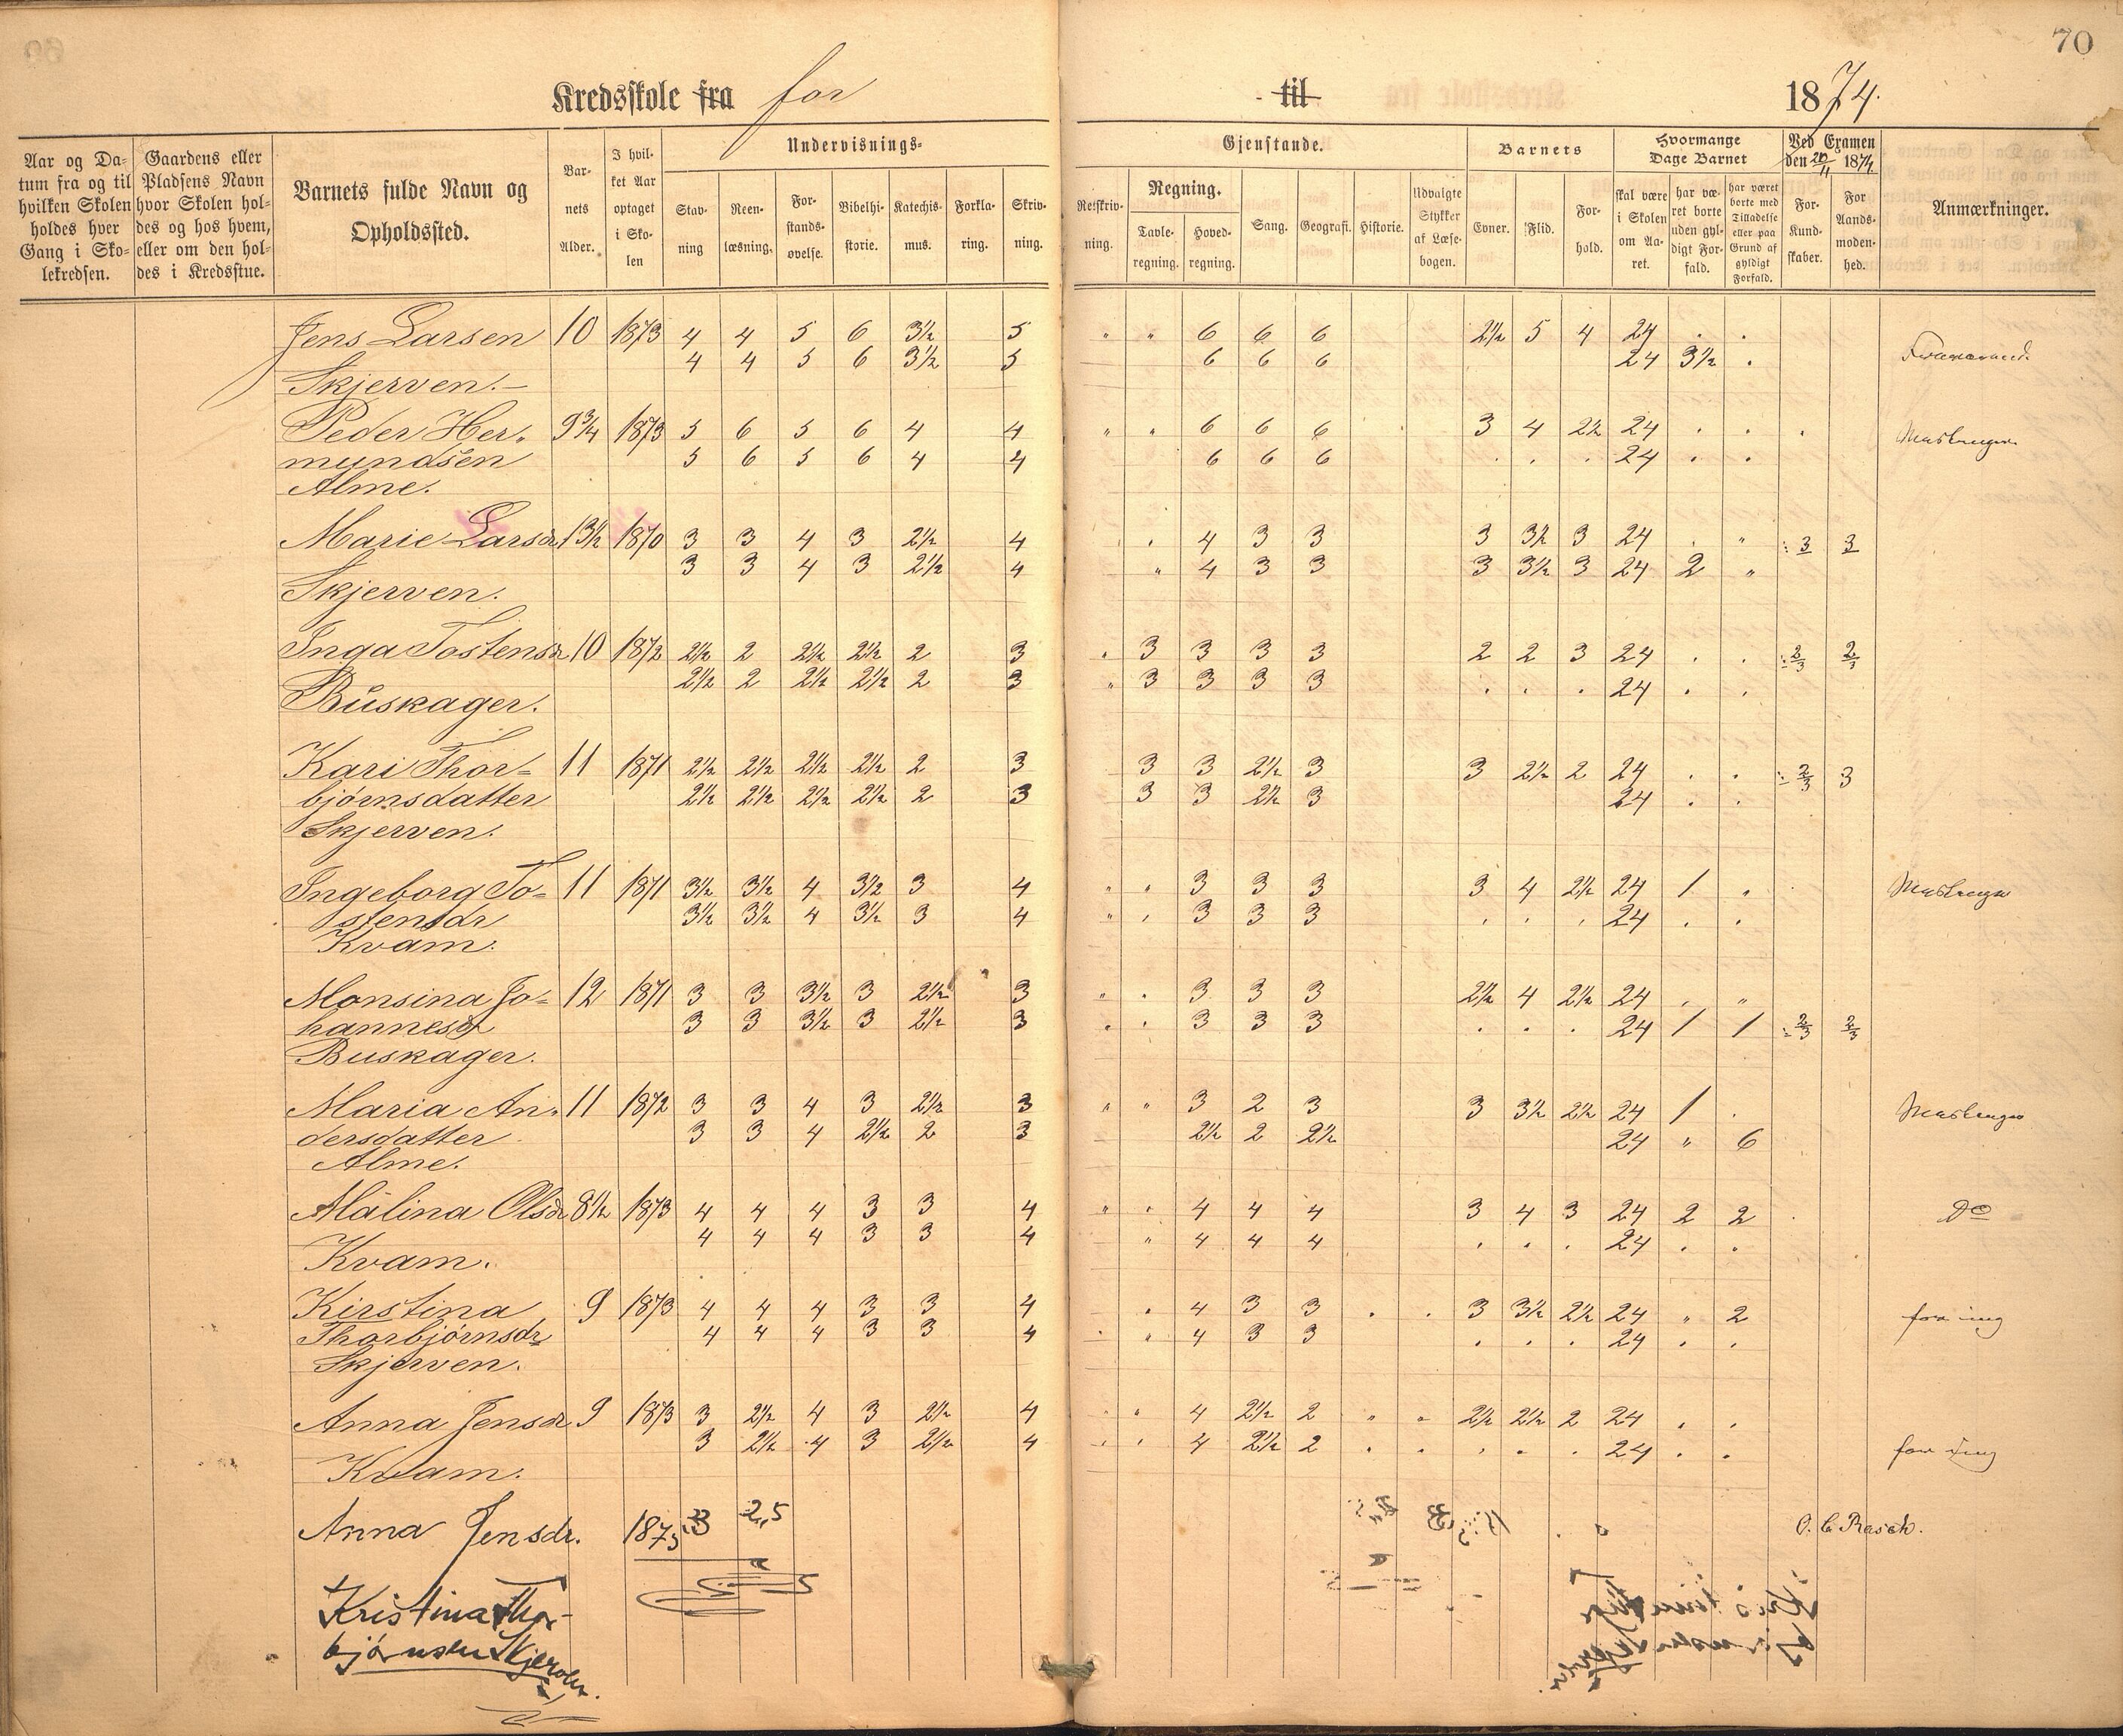 70
Kredsskole fra for til 1874.
Aar og Da- tum fra og til hvilken Skolen holdes hver Gang i Sko- lekredsen.
Gaardens eller Pladsens Navn hvor Skolen hol- des og hos hvem, eller om den hol- des i Kredsstue.
Barnets fulde Navn og Opholdssted.
Bar- nets Alder.
I hvil- ket Aar optaget i Sko- len
Undervisnings- Gjenstande.
Stav- ning
Reen- læsning.
For- stands- øvelse.
Bibelhi- storie.
Katechis- mus.
Forkla- ring.
Skriv- ning.
Retskriv- ning.
Regning.
Tavle- regning.
Hoved- regning.
Sang.
Geografi.
Historie.
Udvalgte Stykker af Læse- bogen.
Barnets
Evner.
Flid.
For- hold.
Hvormange Dage Barnet
skal være i Skolen om Aa- ret.
har væ- ret borte uden gyl- digt For- fald.
har været borte med Tilladelse eller paa Grund af gyldigt Forfald.
Ved Examen den 20/11 1874.
For Kund- skaber.
For Aands- moden- hed.
Anmærkninger.
Jens Larsen 10 1873 4 4 5 6 3½ 5 " " 6 6 6 2½ 5 4 24 . .
4 4 5 6 3½ 5 6 6 6 24 3½ .
Skjerven.-
Peder Her- 9¾ 1873 5 6 5 6 4 4 " " 6 6 6 3 4 2½ 24 . . .
mundsen 5 6 5 6 4 4 6 6 6 . . . 24 . .
Alme.
Marie Larsdr 13½ 1870 3 3 4 3 2½ 4 . 4 3 3 3 3½ 3 24 . " 3 3
3 3 4 3 2½ 4 " 4 3 3 3 3½ 3 24 2 "
Skjerven.
Inga Tostensdr 10 1872 2½ 2 2½ 2½ 2 3 " 3 3 3 3 2 2 3 24 . . 2/3 2/3
2½ 2 2½ 2½ 2 3 " 3 3 3 3 . . . 24 . .
Buskager.
Kari Thor- 11 1871 2½ 2½ 2½ 2½ 2 3 3 3 2½ 3 3 2½ 2 24 . . 2/3 3
bjørnsdatter 2½ 2½ 2½ 2½ 2 3 3 3 2½ 3 24 . .
Skjerven.
Ingeborg To- 11 1871 3½ 3½ 4 3½ 3 4 " " 3 3 3 3 4 2½ 24 1 .
stensdr 3½ 3½ 4 3½ 3 4 " . 3 3 3 . . . 24 . .
Kvam.
Monsina Jo- 12 1871 3 3 3½ 3 2½ 3 " . 3 3 3 2½ 4 2½ 24 . "
hannesdr 3 3 3½ 3 2½ 3 . . 3 3 3 . . . 24 1 1 2/3 2/3
Buskager.
Maria An- 11 1872 3 3 4 3 2½ 3 " " 3 2 3 3 3½ 2½ 24 1 .
dersdatter 3 3 4 2½ 2 3 2½ 2 2½ 24 " 6
Alme.
Malina Olsdr 8½ 1873 4 4 4 3 3 4 " . 4 4 4 3 4 3 24 2 2 do
4 4 4 3 3 4 " 4 4 4 . . . 24 . .
Kvam.
Kirstina 9 1873 4 4 4 3 3 4 . 4 3 3 . . 3 3½ 2½ 24 " 2
Thorbjørnsdr 4 4 4 3 3 4 . " 4 3 3 . . . 24 . .
Skjerven.
Anna Jensdr 9 1873 3 2½ 4 3 2½ 4 " " 4 2½ 2 " " 2½ 2½ 2 24 . .
3 2½ 4 3 2½ 4 . . 4 2½ 2 . . . . . 24 . .
Kvam.
Anna Jensdr. 1873 3 2,5
O. C. Rasch.
Kristina Thor-
bjørnsen Skjerven.